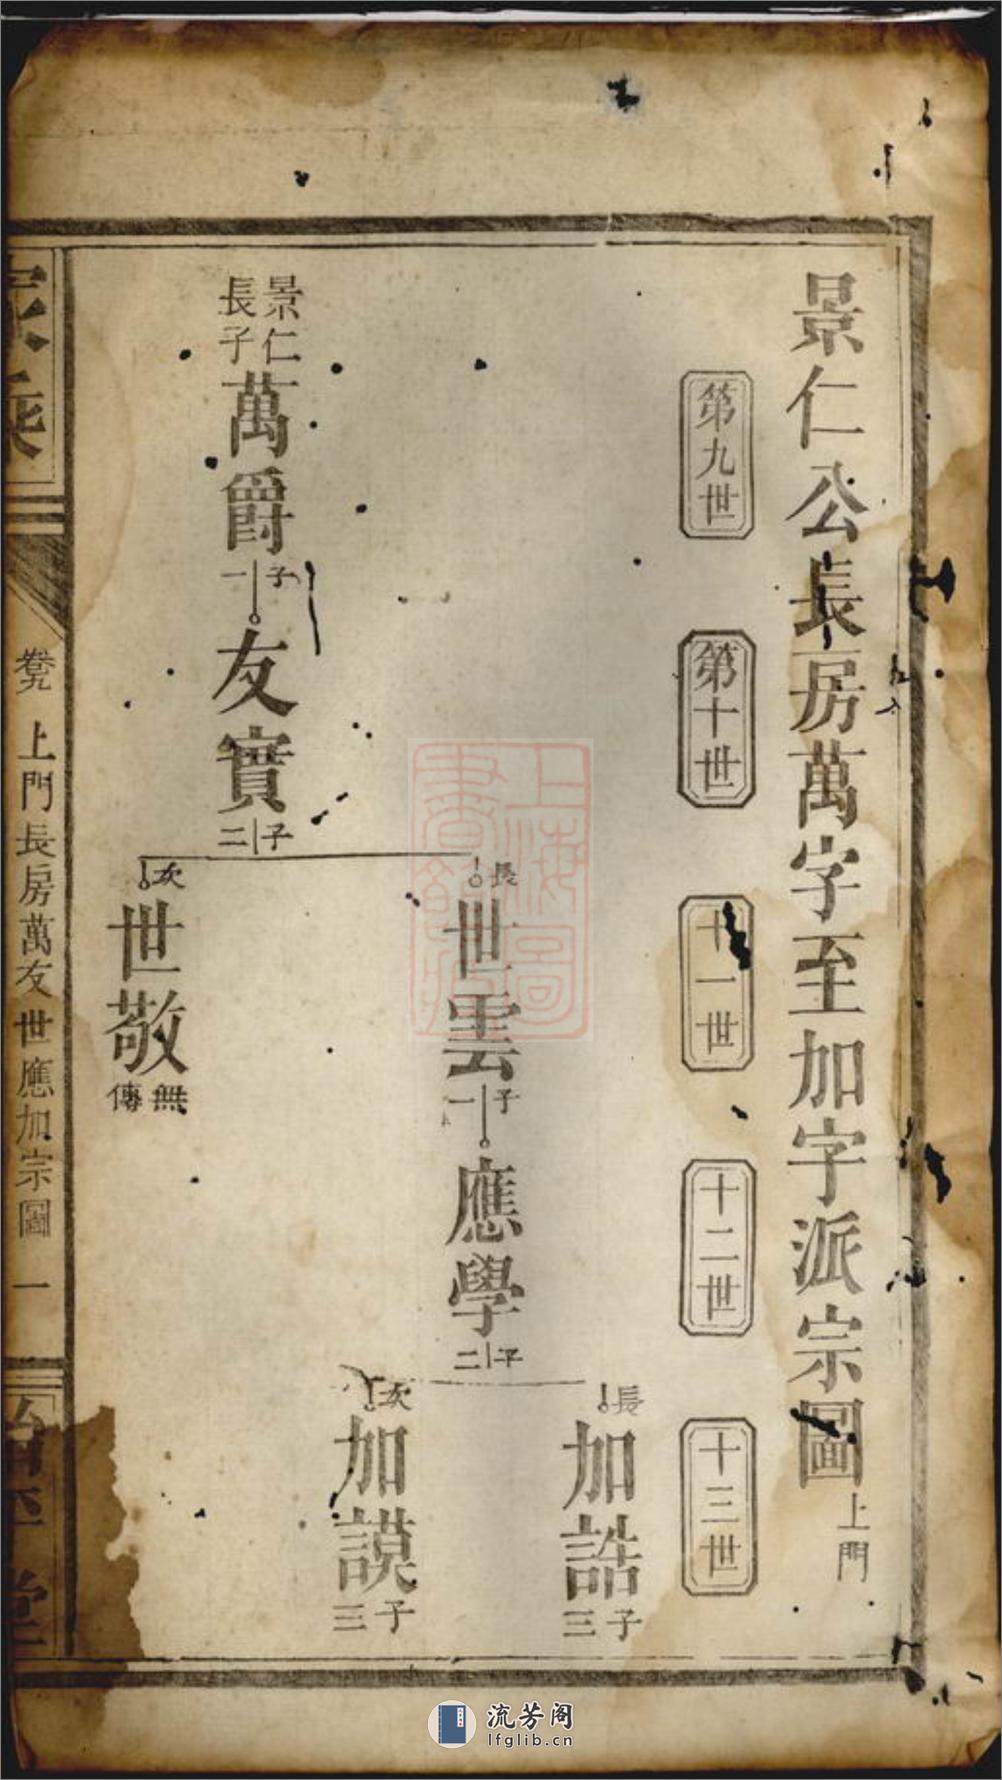 景仁公長房萬字至加字派宗圖上門
第九世
第十世
十一世
十二世
十三世
景仁長子萬爵子一
友實子二
長世雲子一
應學子二
長加誥子三
次加謨子三
次世敬無傳
家乘
卷九
上門長房萬友世應加宗圖
一
堂
上海圖書館藏
流芳阁
lfglib.cn